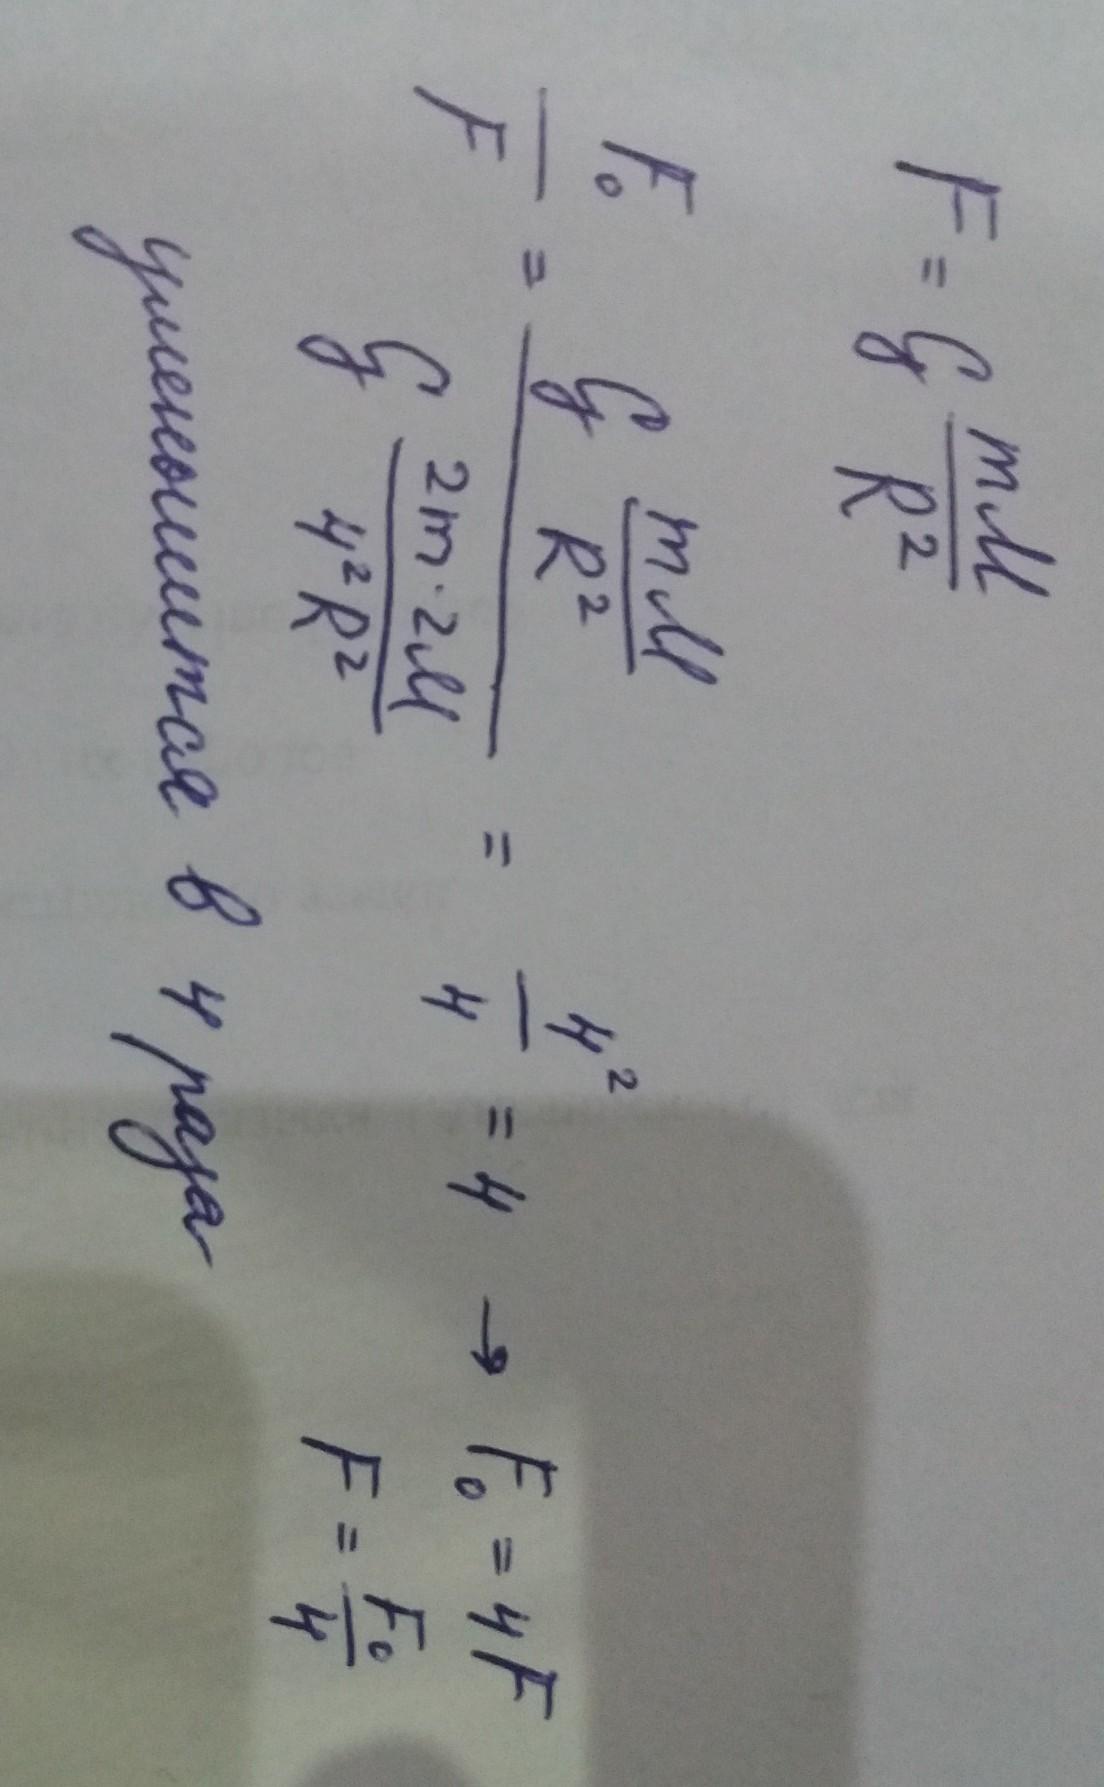 F = G mM/R²
F₀/F = (G mM/R²)/(G 2m·2M/4²R²) = 4²/4 = 4 → F₀ = 4F
F = F₀/4
уменьшится в 4 раза